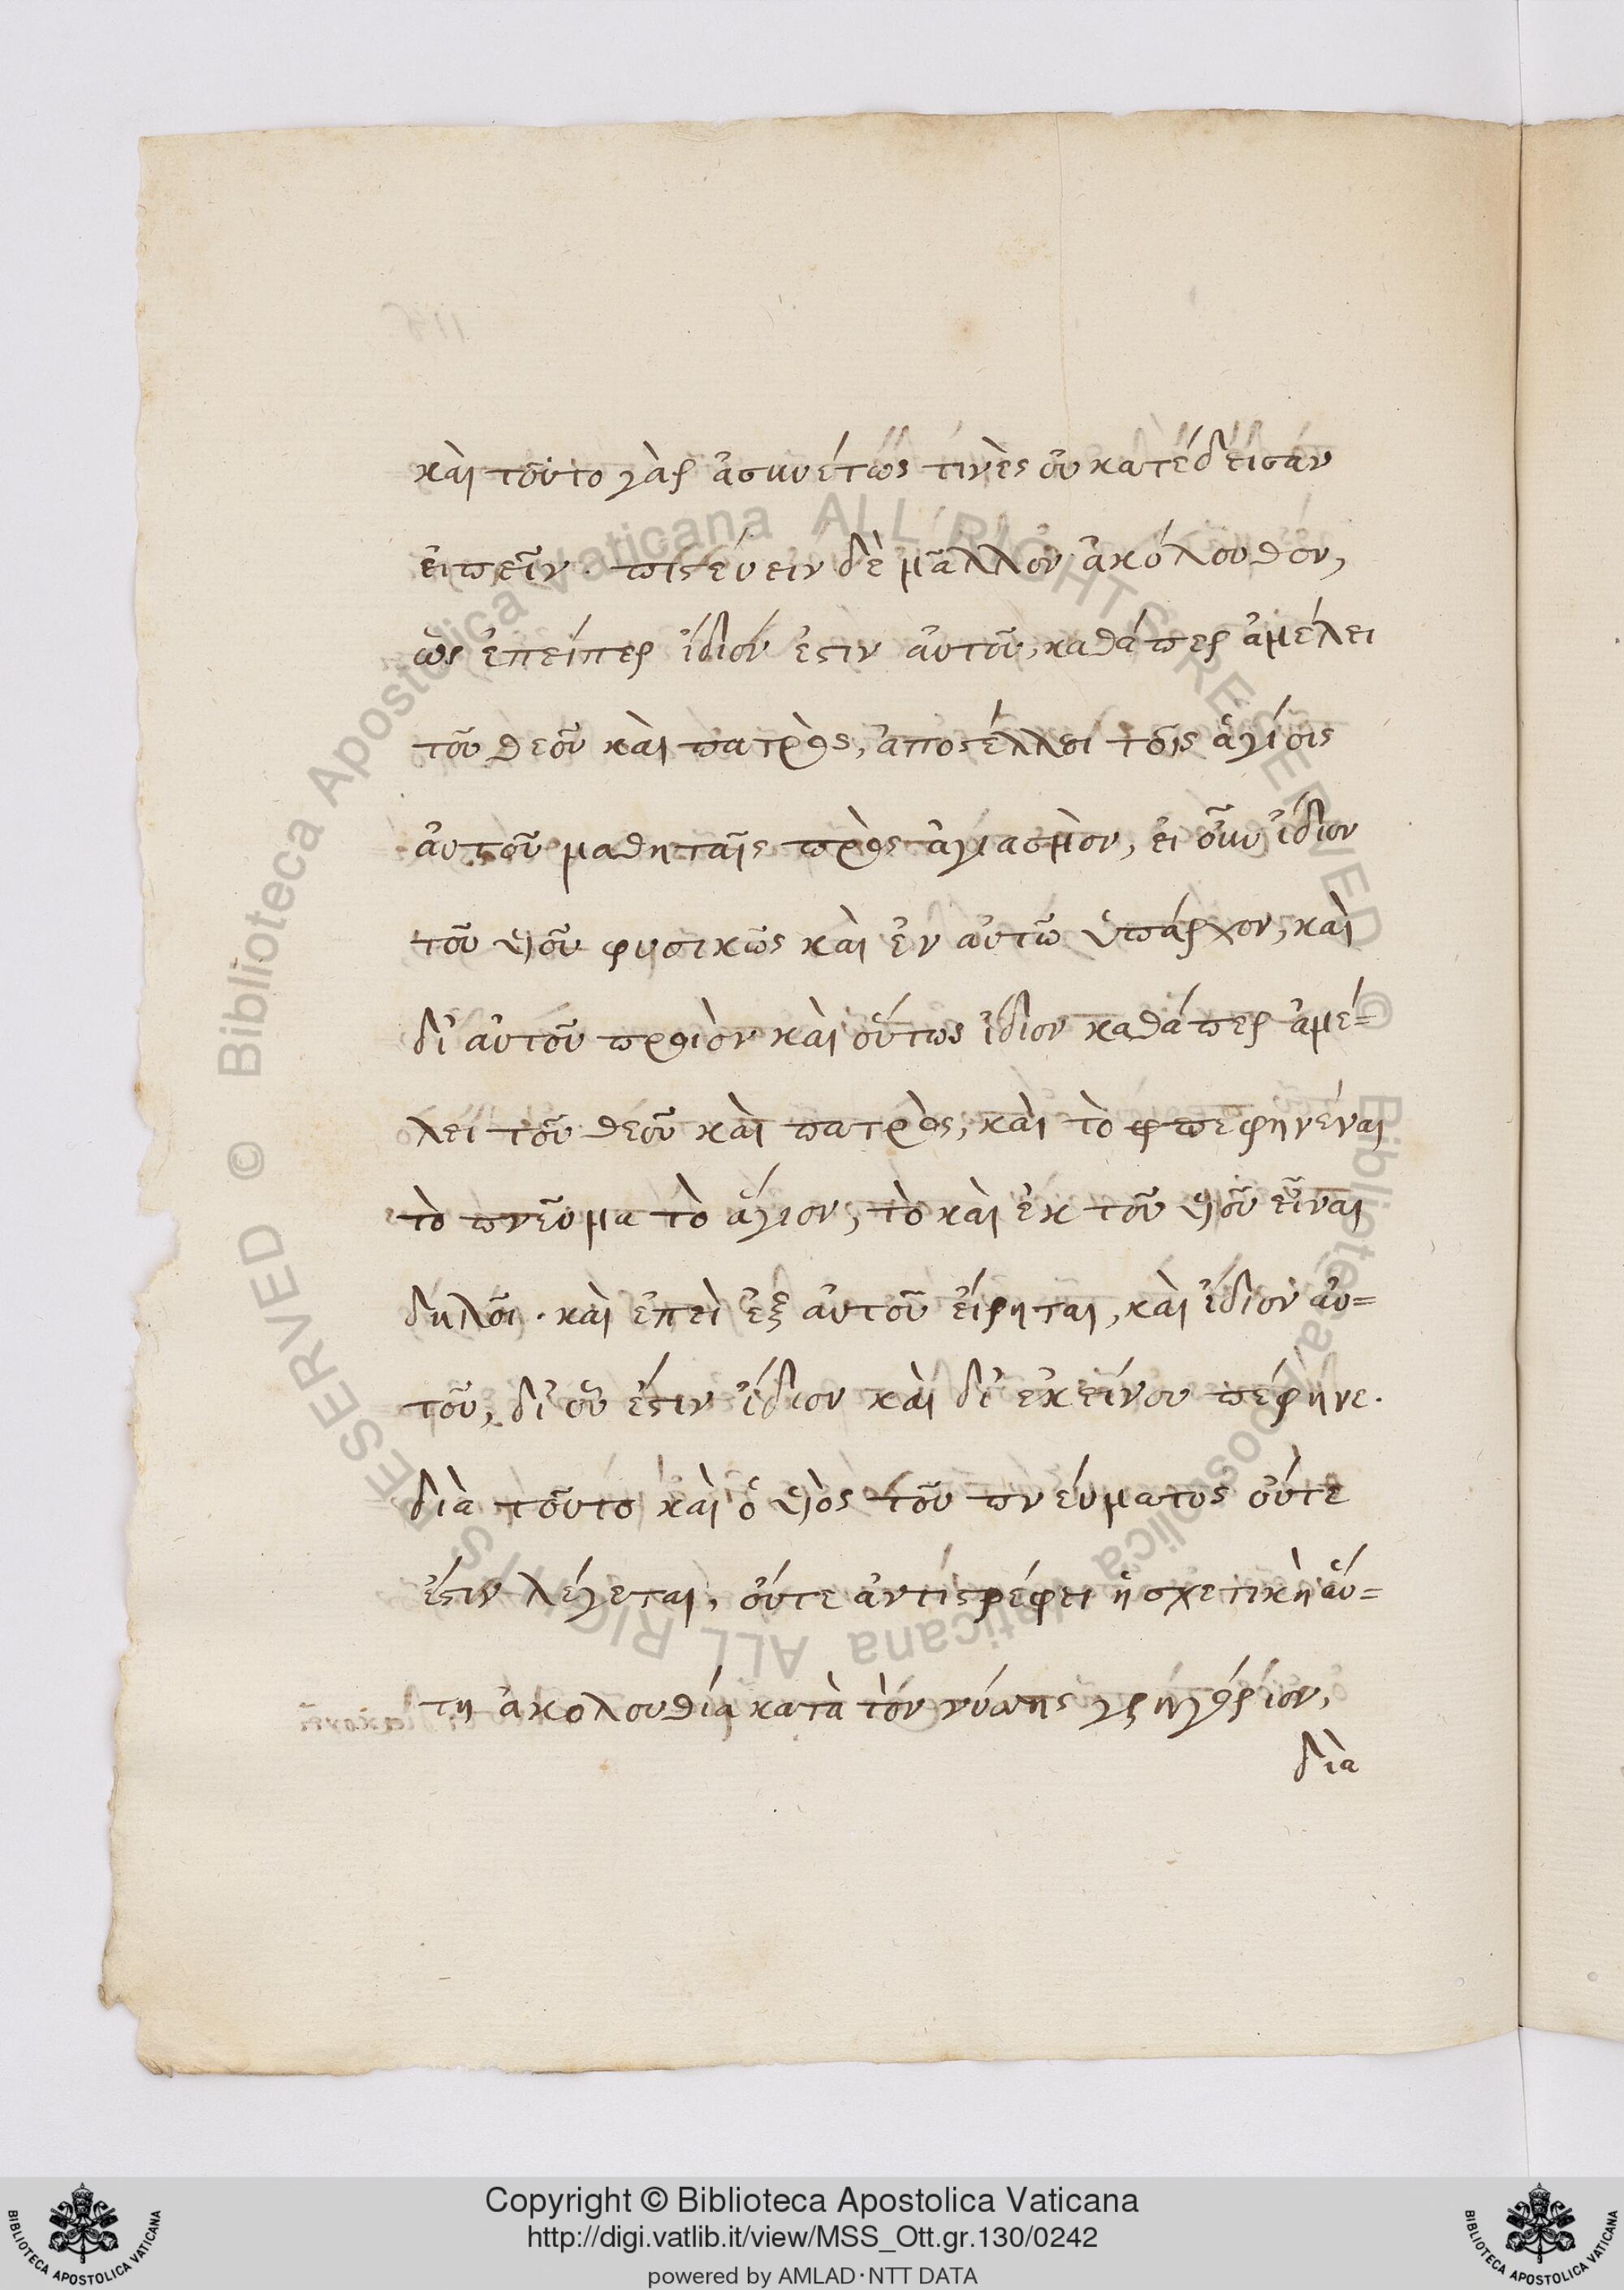 καὶ τοῦτο γὰρ ἀσυνέτως τινὲς οὐ κατέδεισαν
εἰπεῖν. πιστεύειν δὲ μᾶλλον ἀκόλουθον,
ὡς ἐπείπερ ἴδιόν ἐστιν αὐτοῦ, καθάπερ ἀμέλει
τοῦ θεοῦ καὶ πατρὸς, ἀποστέλλει τοῖς ἁγίοις
αὐτοῦ μαθηταῖς πρὸς ἁγιασμὸν, εἰ οὖν ἴδιον
τοῦ υἱοῦ φυσικῶς καὶ ἐν αὐτῶ ὑπάρχον, καὶ
δι' αὐτοῦ προϊὸν καὶ οὕτως ἴδιον καθάπερ ἀμέ=
λει τοῦ θεοῦ καὶ πατρὸς, καὶ τὸ πεφηνέναι
τὸ πνεῦμα τὸ ἅγιον, τὸ καὶ ἐκ τοῦ υἱοῦ εἶναι
δηλοῖ. καὶ ἐπεὶ ἐξ αὐτοῦ εἴρηται, καὶ ἴδιον αὐ=
τοῦ, δι' οὗ ἐστιν ἴδιον καὶ δι' ἐκείνου πέφηνε.
διὰ τοῦτο καὶ ὁ υἱὸς τοῦ πνεύματος οὔτε
ἔστιν λέγεται, οὔτε ἀντιστρέφει ἡ σχετικὴ αὕ=
τη ἀκολουθία κατὰ τὸν νύσης γρηγόριον,
διὰ
© Biblioteca Apostolica Vaticana ALL RIGHTS RESERVED © Biblioteca Apostolica Vaticana ALL RIGHTS RESERVED
BIBLIOTECA APOSTOLICA VATICANA
Copyright © Biblioteca Apostolica Vaticana
http://digi.vatlib.it/view/MSS_Ott.gr.130/0242
powered by AMLAD·NTT DATA
BIBLIOTECA APOSTOLICA VATICANA